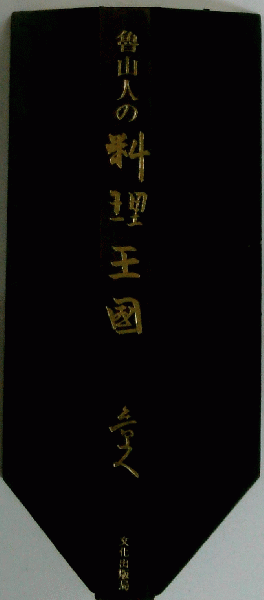 魯山人の
料理王國
魯人
文化出版局